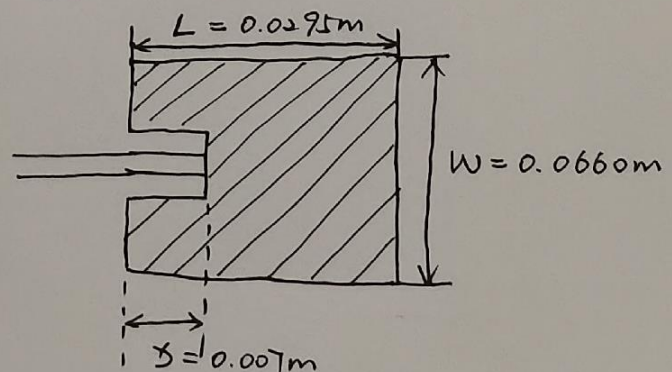 L = 0.0295m
W = 0.0660m
x = 0.007m